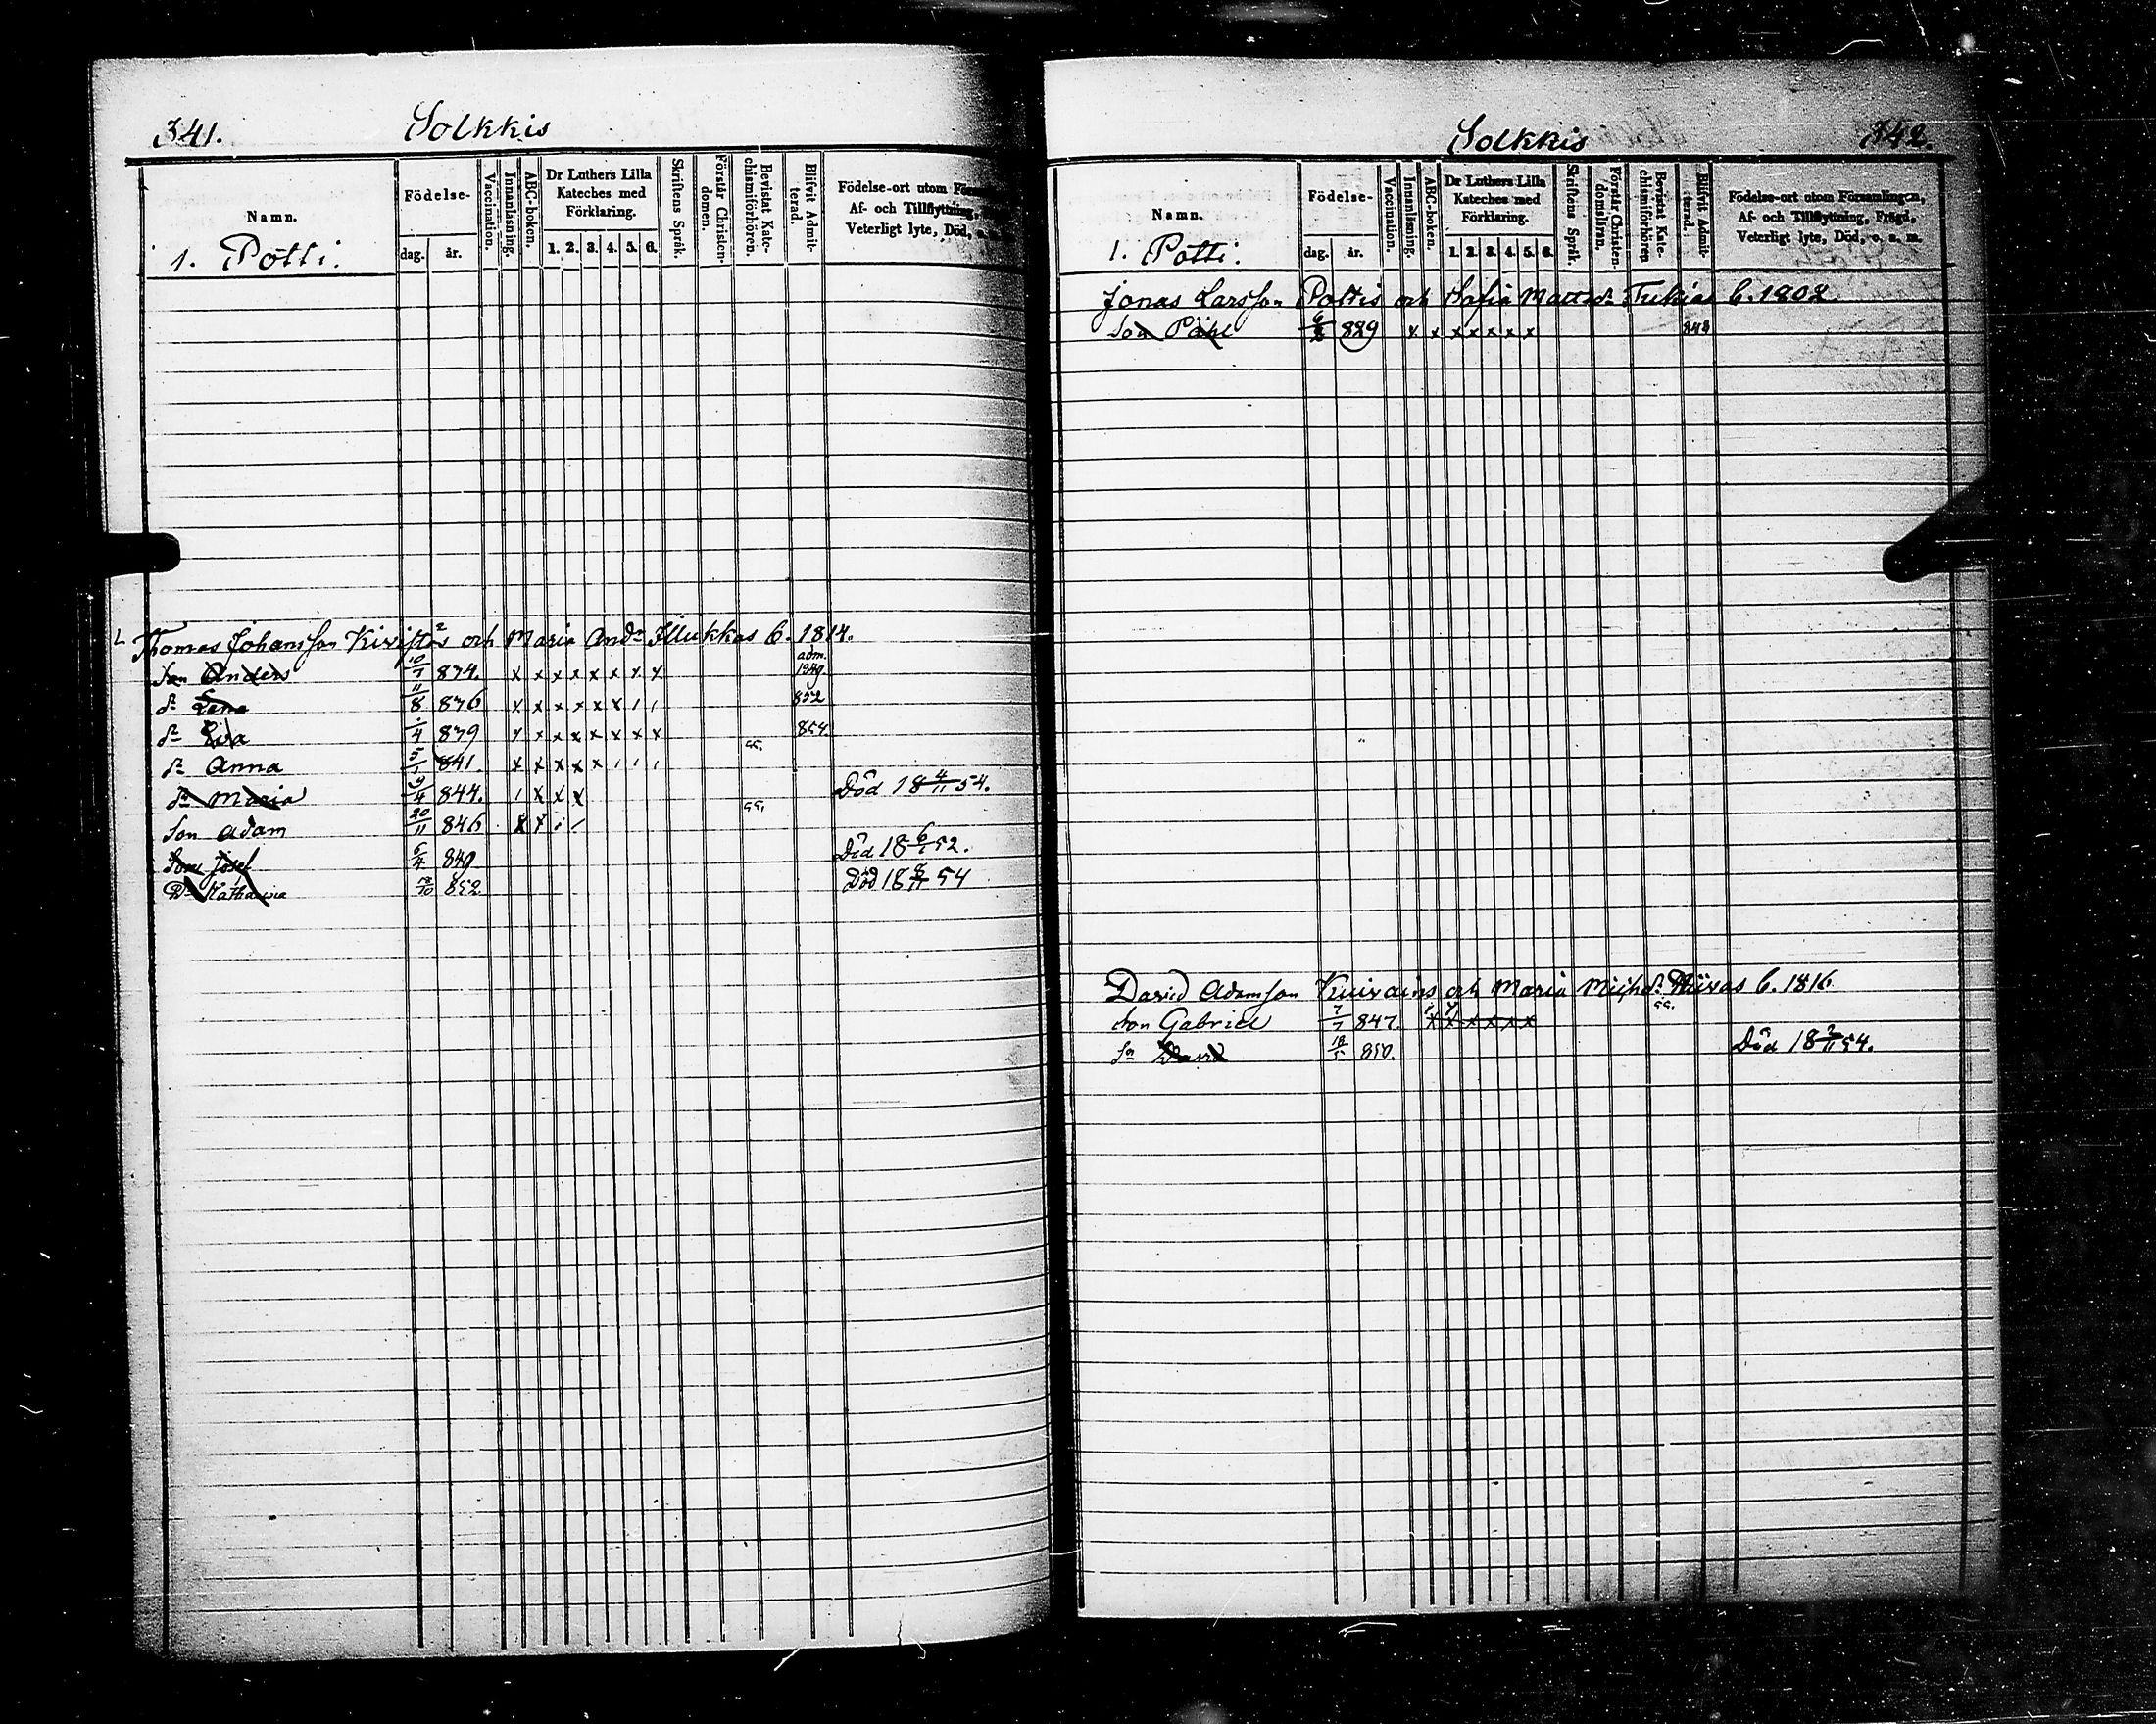 341. Solkkis
Namn.
Födelse-
dag. år.
Vaccination.
Innanläsning.
ABC-boken.
Dr Luthers Lilla Kateches med Förklaring.
1. 2. 3. 4. 5. 6.
Skriftens Språk.
Förstår Christen-domen.
Bevistat Kate-chismiförhören.
Blifvit Admit-terad.
Födelse-ort utom
Af- och Tillflyttning,
Veterligt lyte, Död,
1. Pötti.
Thomas Johansson och Maria And: Illukkas C. 1814.
Son Anders 10/7 834. x x x x x x x x adm. 1849.
dr Lena 11/8 836 x x x x x x 1 1 852
dr Eva 1/4 839 x x x x x x x x 854.
dr Anna 5/1 841. x x x x x 1 1 1
dr Maria 9/4 844. 1 x x x Död 18 4/11 54.
Son Adam 20/11 846 x x 1 1
Son Josef 6/4 849 Död 18 6/1 52.
Dr Katharina /10 852 Död 18 /11 54
Solkkis 342.
Namn.
Födelse-
dag. år.
Vaccination.
Innanläsning.
ABC-boken.
Dr Luthers Lilla Kateches med Förklaring.
1. 2. 3. 4. 5. 6.
Skriftens Språk.
Förstår Christen-domsläran.
Bevistat Kate-chismiförhören
Blifvit Admit-terad.
Födelse-ort utom Församlingen,
Af- och Tillflyttning, Frägd,
Veterligt lyte, Död, o. s. m.
1. Pötti.
Jonas Larsson Pöttis och Sofia Mattsdr Tukias C. 1802.
Son Påhl 829 x x x x x x x 848
David Adamsson Kuivains och Maria C. 1816
Son Gabriel 7/7 847. x x x x x x
Sn David 18/5 850. Död 18 2/11 54.